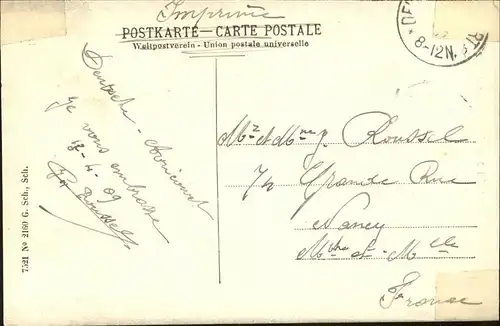 Imprimé
POSTKARTE — CARTE POSTALE
Weltpostverein - Union postale universelle
* DE
8-12N.
Deutsch - Avricourt
Je vous embrasse
13-4-09
Roussel
Mr et Mme J. Roussel
Grande Rue
Nancy
Mthe et Mlle
France
7521 No 2160 G. Sch., Sch.